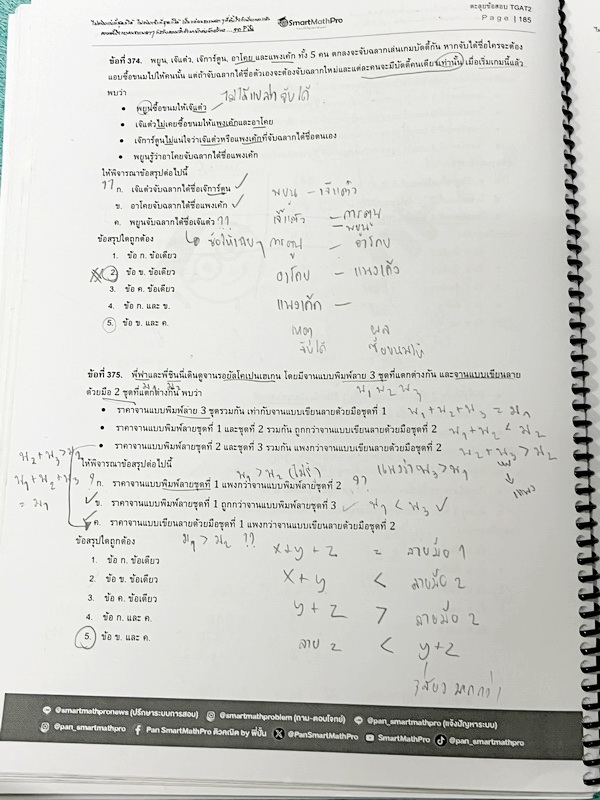 SmartMathPro
ตะลุยข้อสอบ TGAT2
Page | 185
ข้อที่ 374. พยูน, เจ๊แต๋ว, เจ๊การ์ตูน, อาโคย และแพงเค้ก ทั้ง 5 คน ตกลงจะจับฉลากเล่นเกมบัดดี้กัน หากจับได้ชื่อใครจะต้อง
แอบซื้อขนมไปให้คนนั้น แต่ถ้าจับฉลากได้ชื่อตัวเองจะต้องจับฉลากใหม่และแต่ละคนจะมีบัดดี้คนเดียวเท่านั้น เมื่อเริ่มเกมนี้แล้ว
พบว่า
• พยูนซื้อขนมให้เจ๊แต๋ว
ไม่ได้แปลว่าจับได้
• เจ๊แต๋วไม่เคยซื้อขนมให้แพงเค้กและอาโคย
• เจ๊การ์ตูนไม่แน่ใจว่าเจ๊แต๋วหรือแพงเค้กที่จับฉลากได้ชื่อตนเอง
• พยูนรู้ว่าอาโคยจับฉลากได้ชื่อแพงเค้ก
ให้พิจารณาข้อสรุปต่อไปนี้
?? ก. เจ๊แต๋วจับฉลากได้ชื่อเจ๊การ์ตูน ✓
พยูน – เจ๊แต๋ว
ข. อาโคยจับฉลากได้ชื่อแพงเค้ก ✓
เจ๊แต๋ว – การตูน
– พยูน
ค. พยูนจับฉลากได้ชื่อเจ๊แต๋ว ??
ข้อสรุปใดถูกต้อง
1. ข้อ ก. ข้อเดียว
2. ข้อ ข. ข้อเดียว
3. ข้อ ค. ข้อเดียว
แพงเค้ก –
4. ข้อ ก. และ ข.
5. ข้อ ข. และ ค.
เหตุ ผล
จับได้ ซื้อขนมให้
ข้อที่ 375. พี่ฟาและพี่ชินนี่เดินดูจานรอยัลโคเปนเฮเกน โดยมีจานแบบพิมพ์ลาย 3 ชุดที่แตกต่างกัน และจานแบบเขียนลาย
ด้วยมือ 2 ชุดที่แตกต่างกัน พบว่า
พ1 พ2 พ3
• ราคาจานแบบพิมพ์ลาย 3 ชุดรวมกัน เท่ากับจานแบบเขียนลายด้วยมือชุดที่ 1
พ1+พ2+พ3 = ม1
• ราคาจานแบบพิมพ์ลายชุดที่ 1 และชุดที่ 2 รวมกัน ถูกกว่าจานแบบเขียนลายด้วยมือชุดที่ 2
พ1+พ2 < ม2
• ราคาจานแบบพิมพ์ลายชุดที่ 2 และชุดที่ 3 รวมกัน แพงกว่าจานแบบเขียนลายด้วยมือชุดที่ 2
พ2+พ3 > ม2
ให้พิจารณาข้อสรุปต่อไปนี้
ก. ราคาจานแบบพิมพ์ลายชุดที่ 1 แพงกว่าจานแบบพิมพ์ลายชุดที่ 2
ข. ราคาจานแบบพิมพ์ลายชุดที่ 1 ถูกกว่าจานแบบพิมพ์ลายชุดที่ 3 ✓ พ1 < พ3 ✓
ค. ราคาจานแบบเขียนลายด้วยมือชุดที่ 1 แพงกว่าจานแบบเขียนลายด้วยมือชุดที่ 2
ข้อสรุปใดถูกต้อง
ม1 > ม2 ??
x+y+z = ลายมือ 1
1. ข้อ ก. ข้อเดียว
2. ข้อ ข. ข้อเดียว
x+y < ลายมือ 2
3. ข้อ ค. ข้อเดียว
y+z > ลายมือ 2
4. ข้อ ก. และ ค.
5. ข้อ ข. และ ค.
ลาย 2 < y+z
@smartmathpronews (ปรึกษาระบบการสอบ) @smartmathproblem (ถาม-ตอบโจทย์) @pan_smartmathpro (แจ้งปัญหาระบบ)
@pan_smartmathpro Pan SmartMathPro ติวคณิต by พี่ปั้น @PanSmartMathPro SmartMathPro @pan_smartmathpro